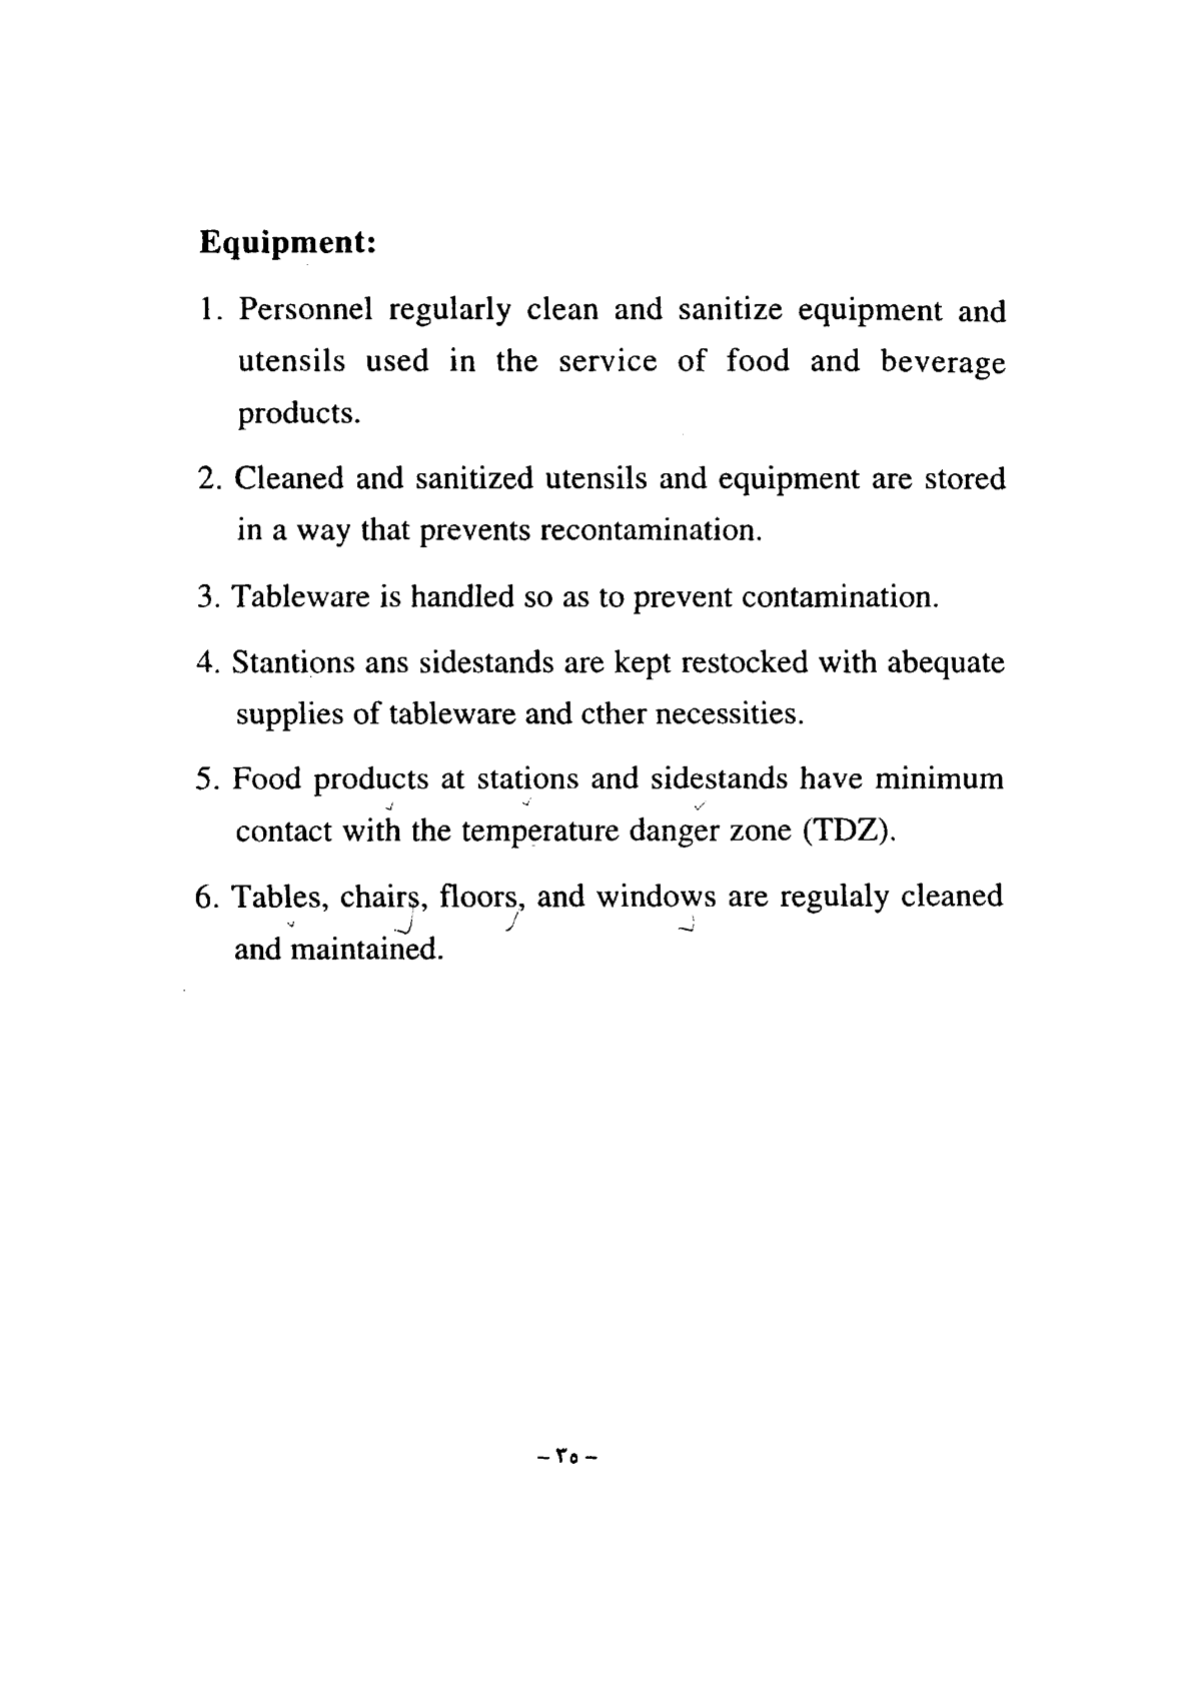 Equipment:
1. Personnel regularly clean and sanitize equipment and
utensils used in the service of food and beverage
products.
2. Cleaned and sanitized utensils and equipment are stored
in a way that prevents recontamination.
3. Tableware is handled so as to prevent contamination.
4. Stantions ans sidestands are kept restocked with abequate
supplies of tableware and cther necessities.
5. Food products at stations and sidestands have minimum
contact with the temperature danger zone (TDZ).
6. Tables, chairs, floors, and windows are regulaly cleaned
and maintained.
– ٢٥ –